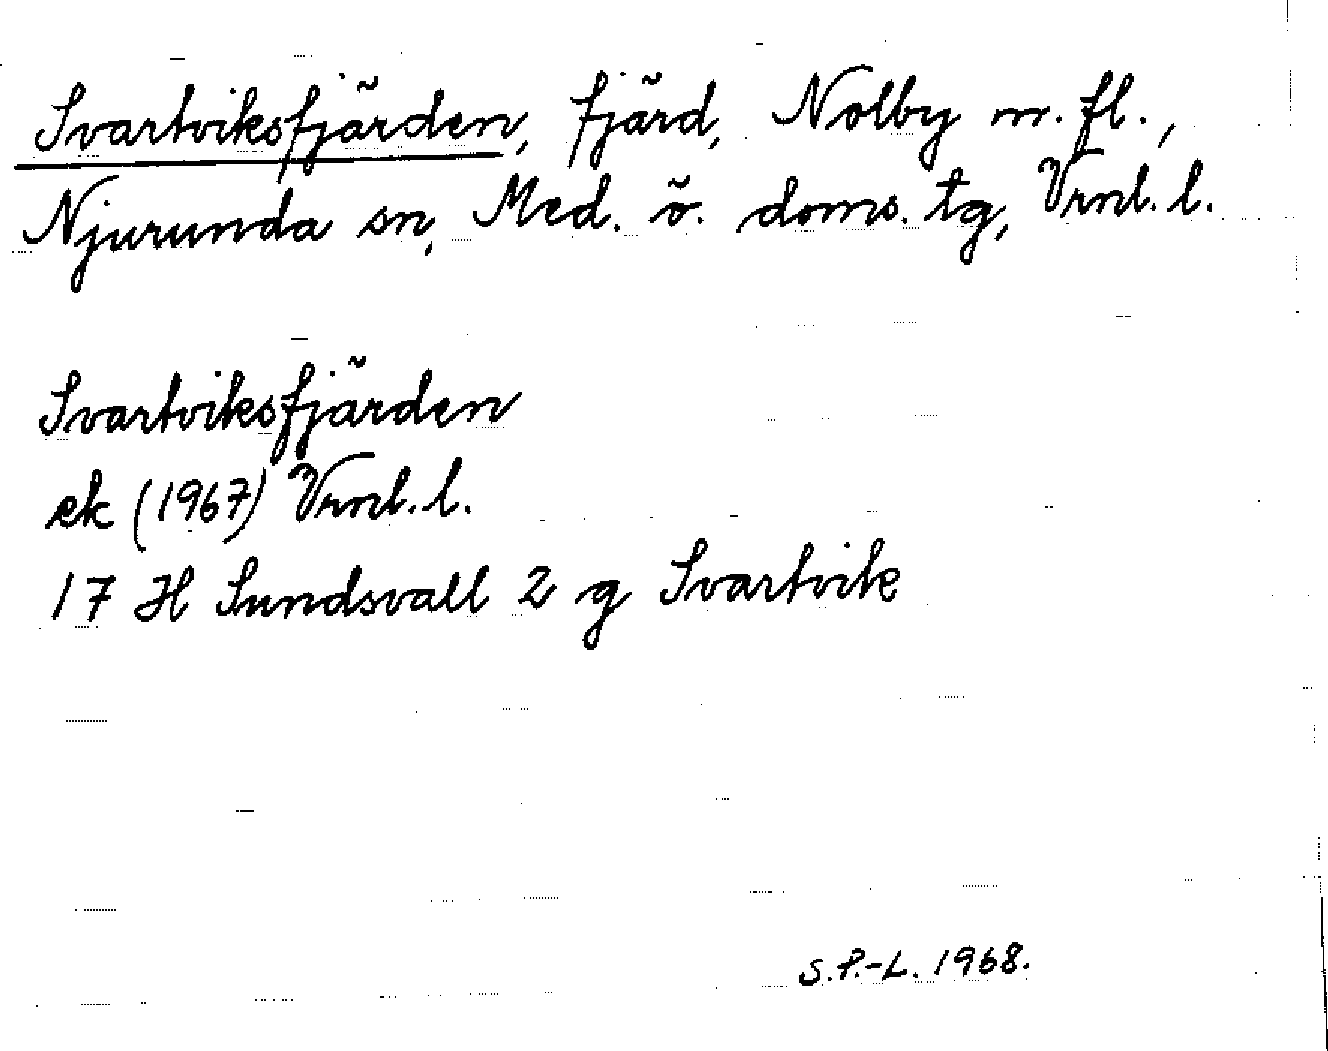 Svartviksfjärden, fjärd, Nolby m. fl.,
Njurunda sn, Med. ö. doms. tg, Vrnl. l.
Svartviksfjärden
ek (1967) Vrnl. l.
17 H Sundsvall 2 g Svartvik
S.P.-L. 1968.